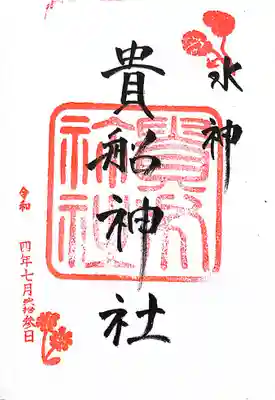 水神
貴船神社
貴船
神社
令和
四年七月弐拾参日